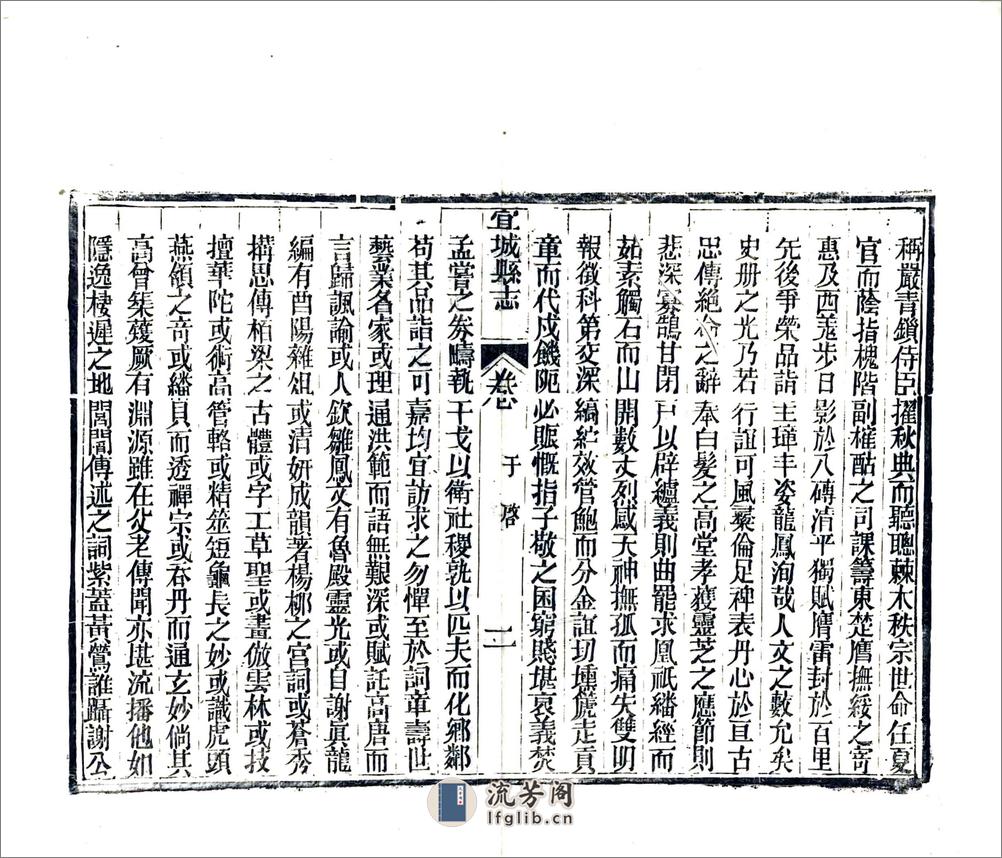 稱嚴青鎖侍臣擢秋典而聽聰棘木秩宗世命任夏
官而蔭指槐階副榷酤之司課籌東楚膺撫綏之寄
惠及西羗步日影於八磚清平獨賦膺雷封於百里
先後爭榮品詣主璋丰姿龍鳳洵哉人文之數允矣
史册之光乃若行誼可風彞倫足裨表丹心於亘古
忠傳絕命之辭奉白髮之高堂孝獲靈芝之應節則
悲深寡鵠甘閉戸以辟纑義則曲罷求凰祇繙經而
茹素觸石而山開數丈烈感天神撫孤而痛失雙明
報徵科第交深縞紵效管鮑而分金誼切壎箎走貢
章而代戍饑阨必賑慨指子敬之囷窮賤堪哀義焚
宜城縣志
卷
于啓
二
孟嘗之劵疇執干戈以衛社稷孰以匹夫而化鄉鄰
苟其品詣之可嘉均宜訪求之勿憚至於詞章壽世
藝業名家或理通洪範而語無艱深或賦託高唐而
言歸諷諭或人欽雛鳳文有魯殿靈光或自謝眞龍
編有酉陽雜俎或清妍成韻著楊柳之宮詞或蒼秀
搆思傳柏梁之古體或字工草聖或畫倣雲林或技
擅華陀或術高管輅或精筮短龜長之妙或識虎頭
燕頷之竒或繙貝而透禪宗或吞丹而通玄妙倘其
高曾集蒦厥有淵源雖在父老傳聞亦堪流播他如
隱逸棲遲之地閭閻傳述之詞紫蓋黃鶯誰躡謝公
流芳阁
lfglib.cn